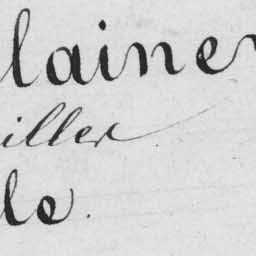 laine
iller
le.